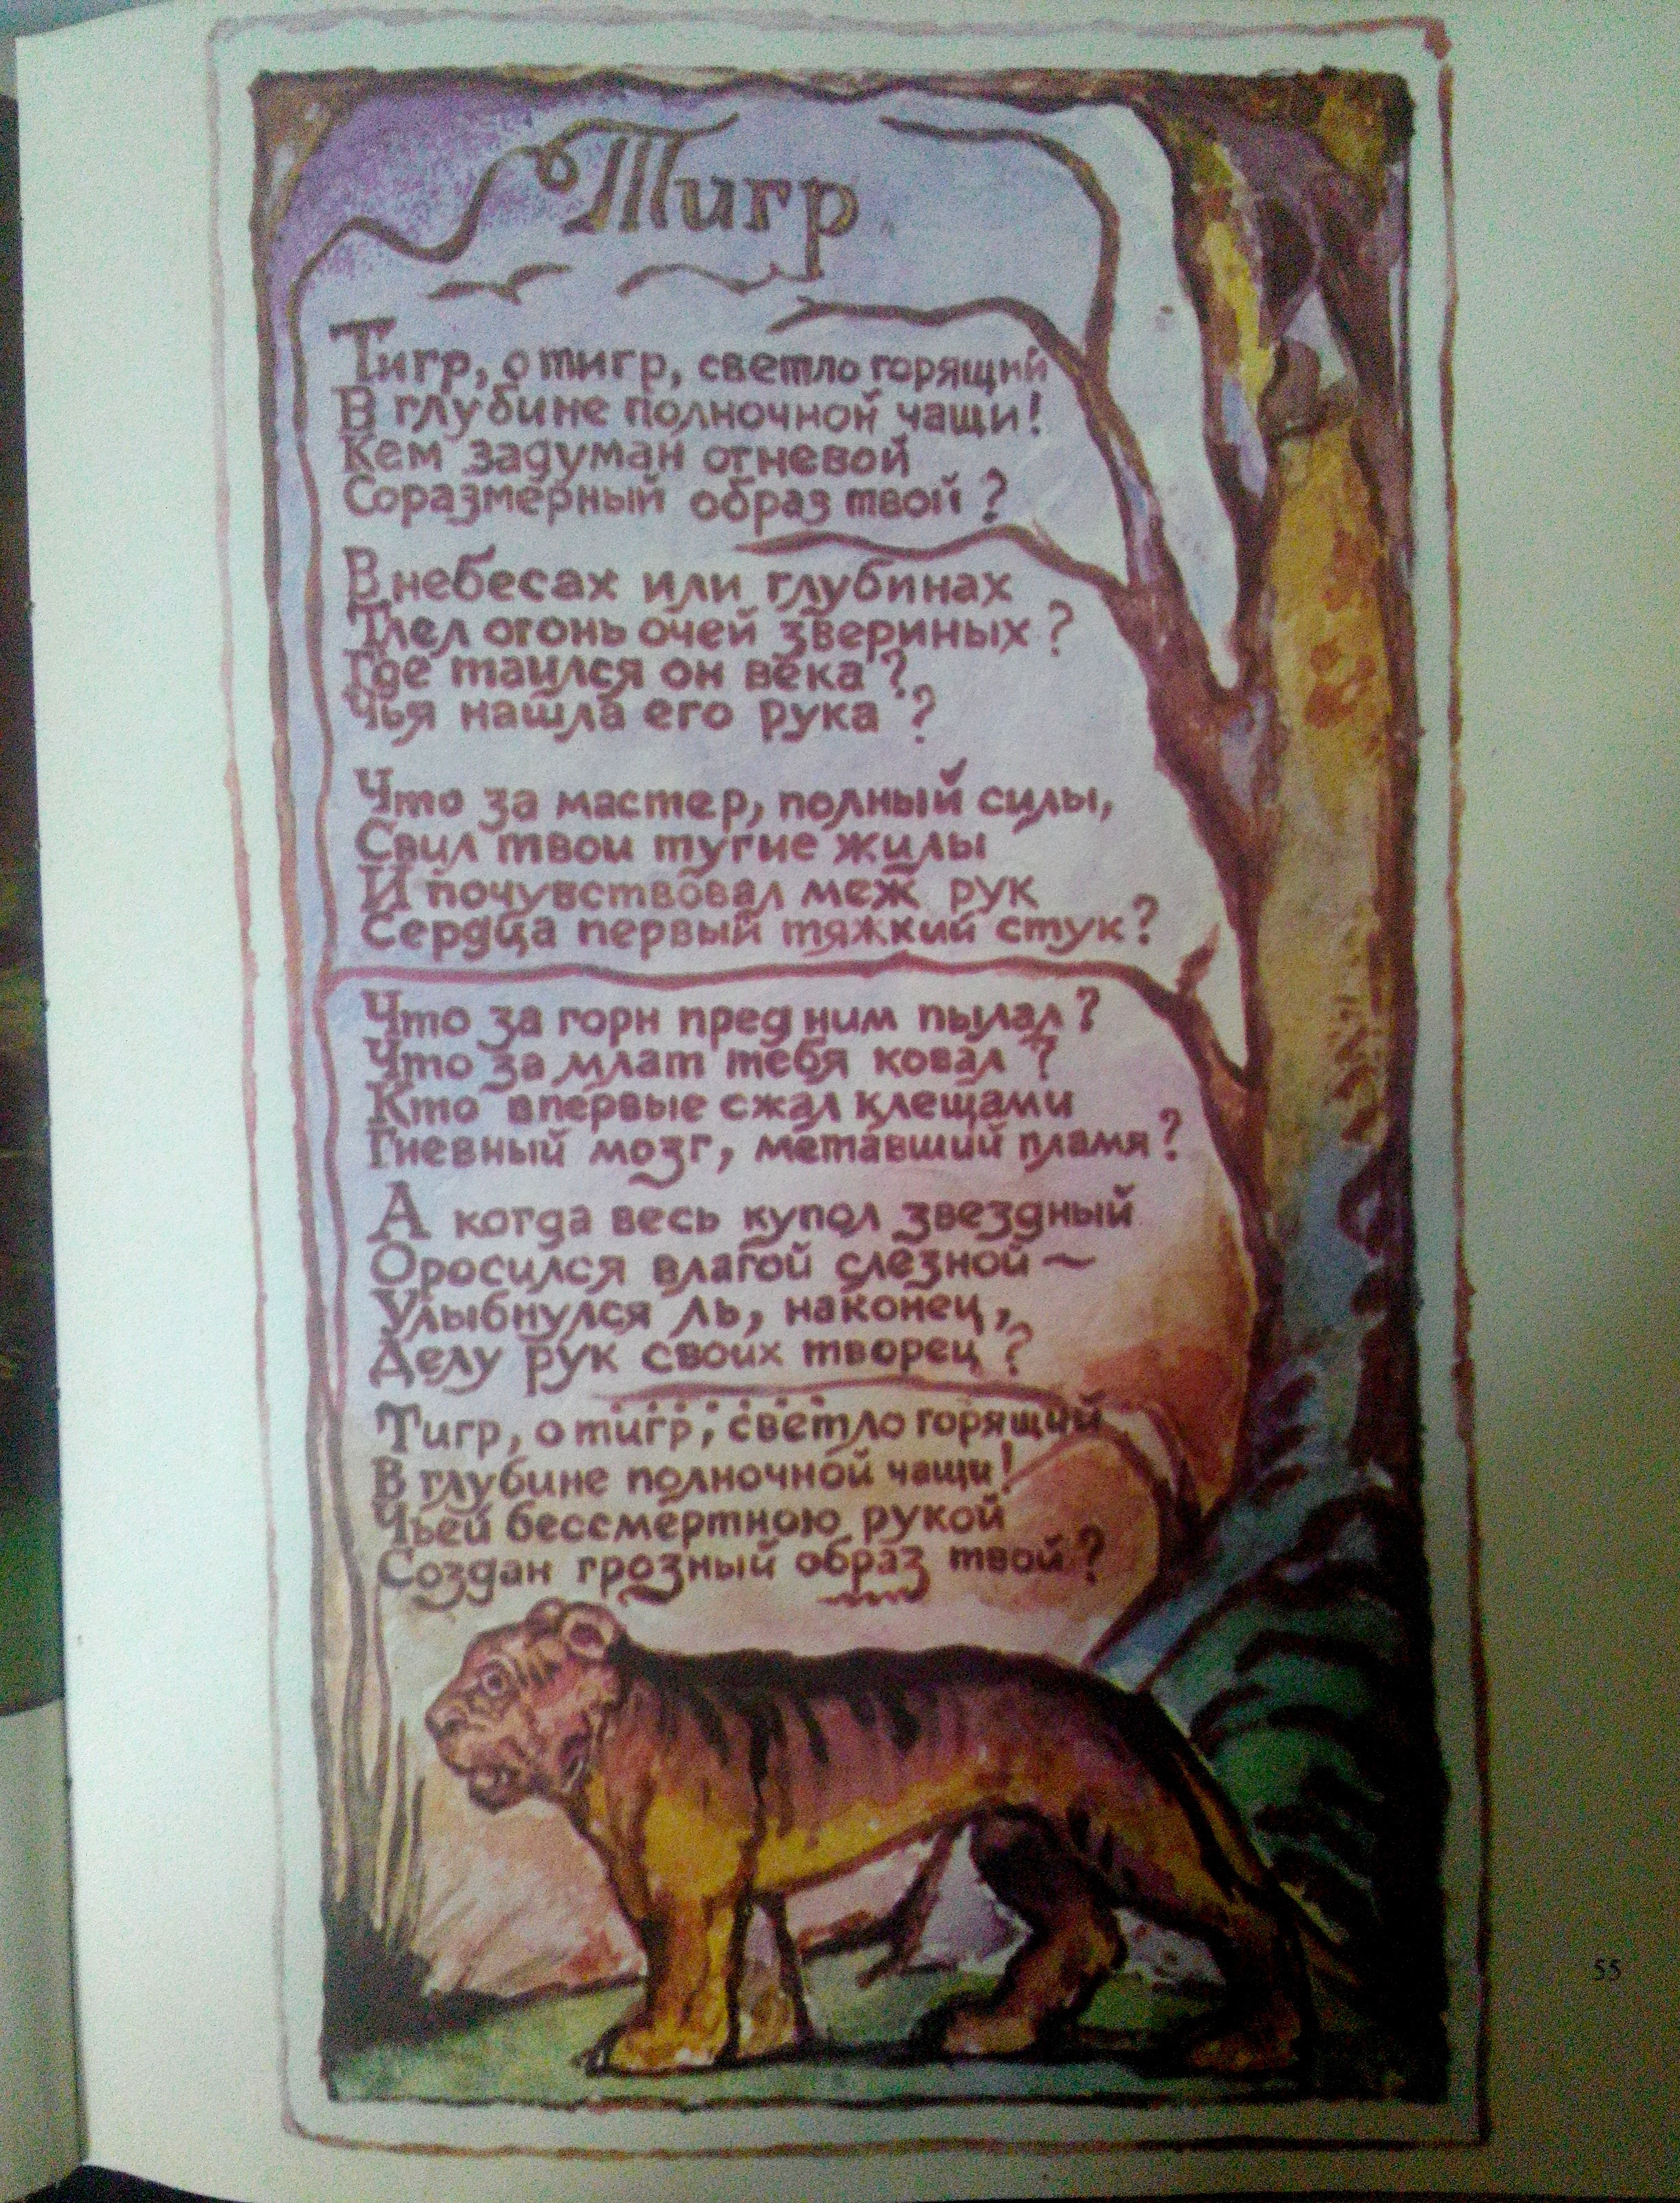 Тигр
Тигр, о тигр, светло горящий
В глубине полночной чащи!
Кем задуман огневой
Соразмерный образ твой?
В небесах или глубинах
Тлел огонь очей звериных?
Где таился он века?
Чья нашла его рука?
Что за мастер, полный силы,
Свил твои тугие жилы
И почувствовал меж рук
Сердца первый тяжкий стук?
Что за горн пред ним пылал?
Что за млат тебя ковал?
Кто впервые сжал клещами
Гневный мозг, метавший пламя?
А когда весь купол звездный
Оросился влагой слезной ~
Улыбнулся ль, наконец,
Делу рук своих творец?
Тигр, о тигр, светло горящий
В глубине полночной чащи!
Чьей бессмертною рукой
Создан грозный образ твой?
55